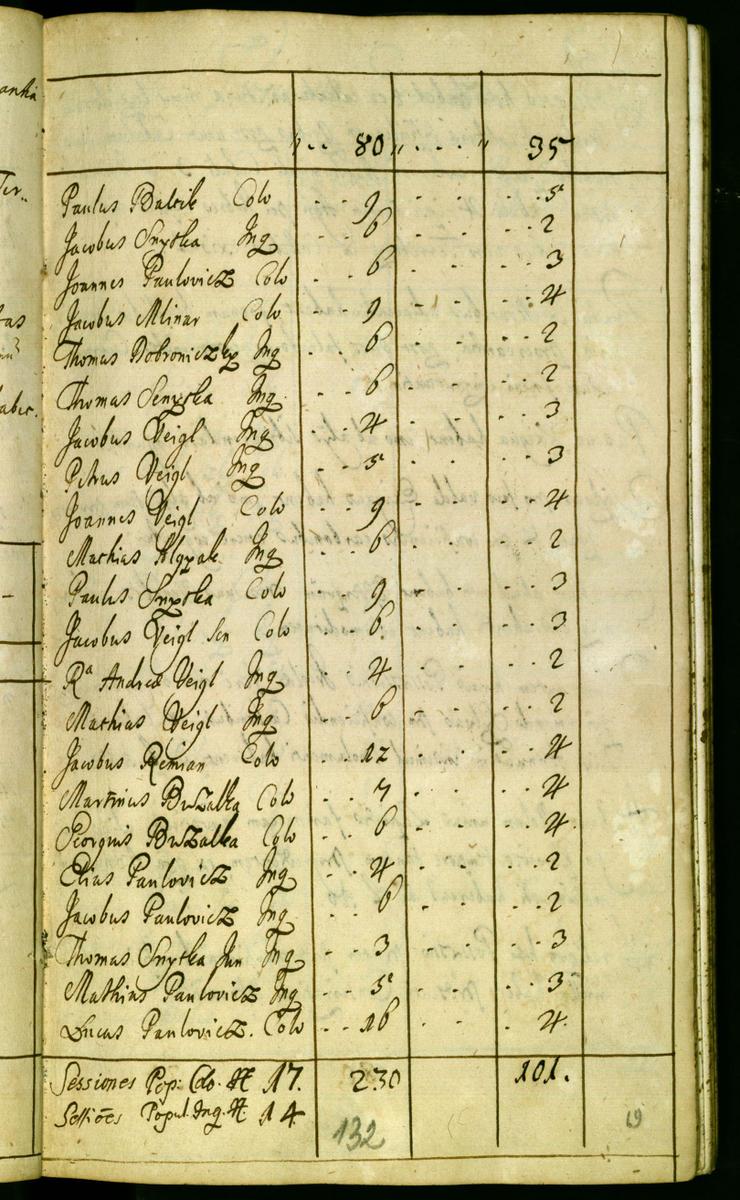 80 35
Paulus Balcik Colo 9 5
Jacobus Snyska Inq 6 2
Joannes Paulovicz Colo 6 3
Jacobus Mlinar Colo 9 4
Thomas Inq 6 2
Thomas Inq 6 2
Jacobus Veigl Inq 4 3
Petrus Veigl Inq 5 3
Joannes Veigl Colo 9 4
Mathias Inq 6 2
Paulus Snyska Colo 9 3
Jacobus Veigl Sen Colo 6 3
Rª Andreæ Veigl Inq 4 2
Mathias Veigl Inq 6 2
Jacobus Remian Colo 12 4
Martinus BuZalka Colo 7 4
Georgius BuZalka Colo 6 4
Elias Paulovicz Inq 4 2
Jacobus Paulovicz Inq 6 2
Thomas Snyska Jun Inq 3 3
Mathias Paulovicz Inq 5 3
Lucas Paulovicz. Colo 16 4
Sessiones Pop: Colo. 17. 230 101.
Popul. Inq. 14
132